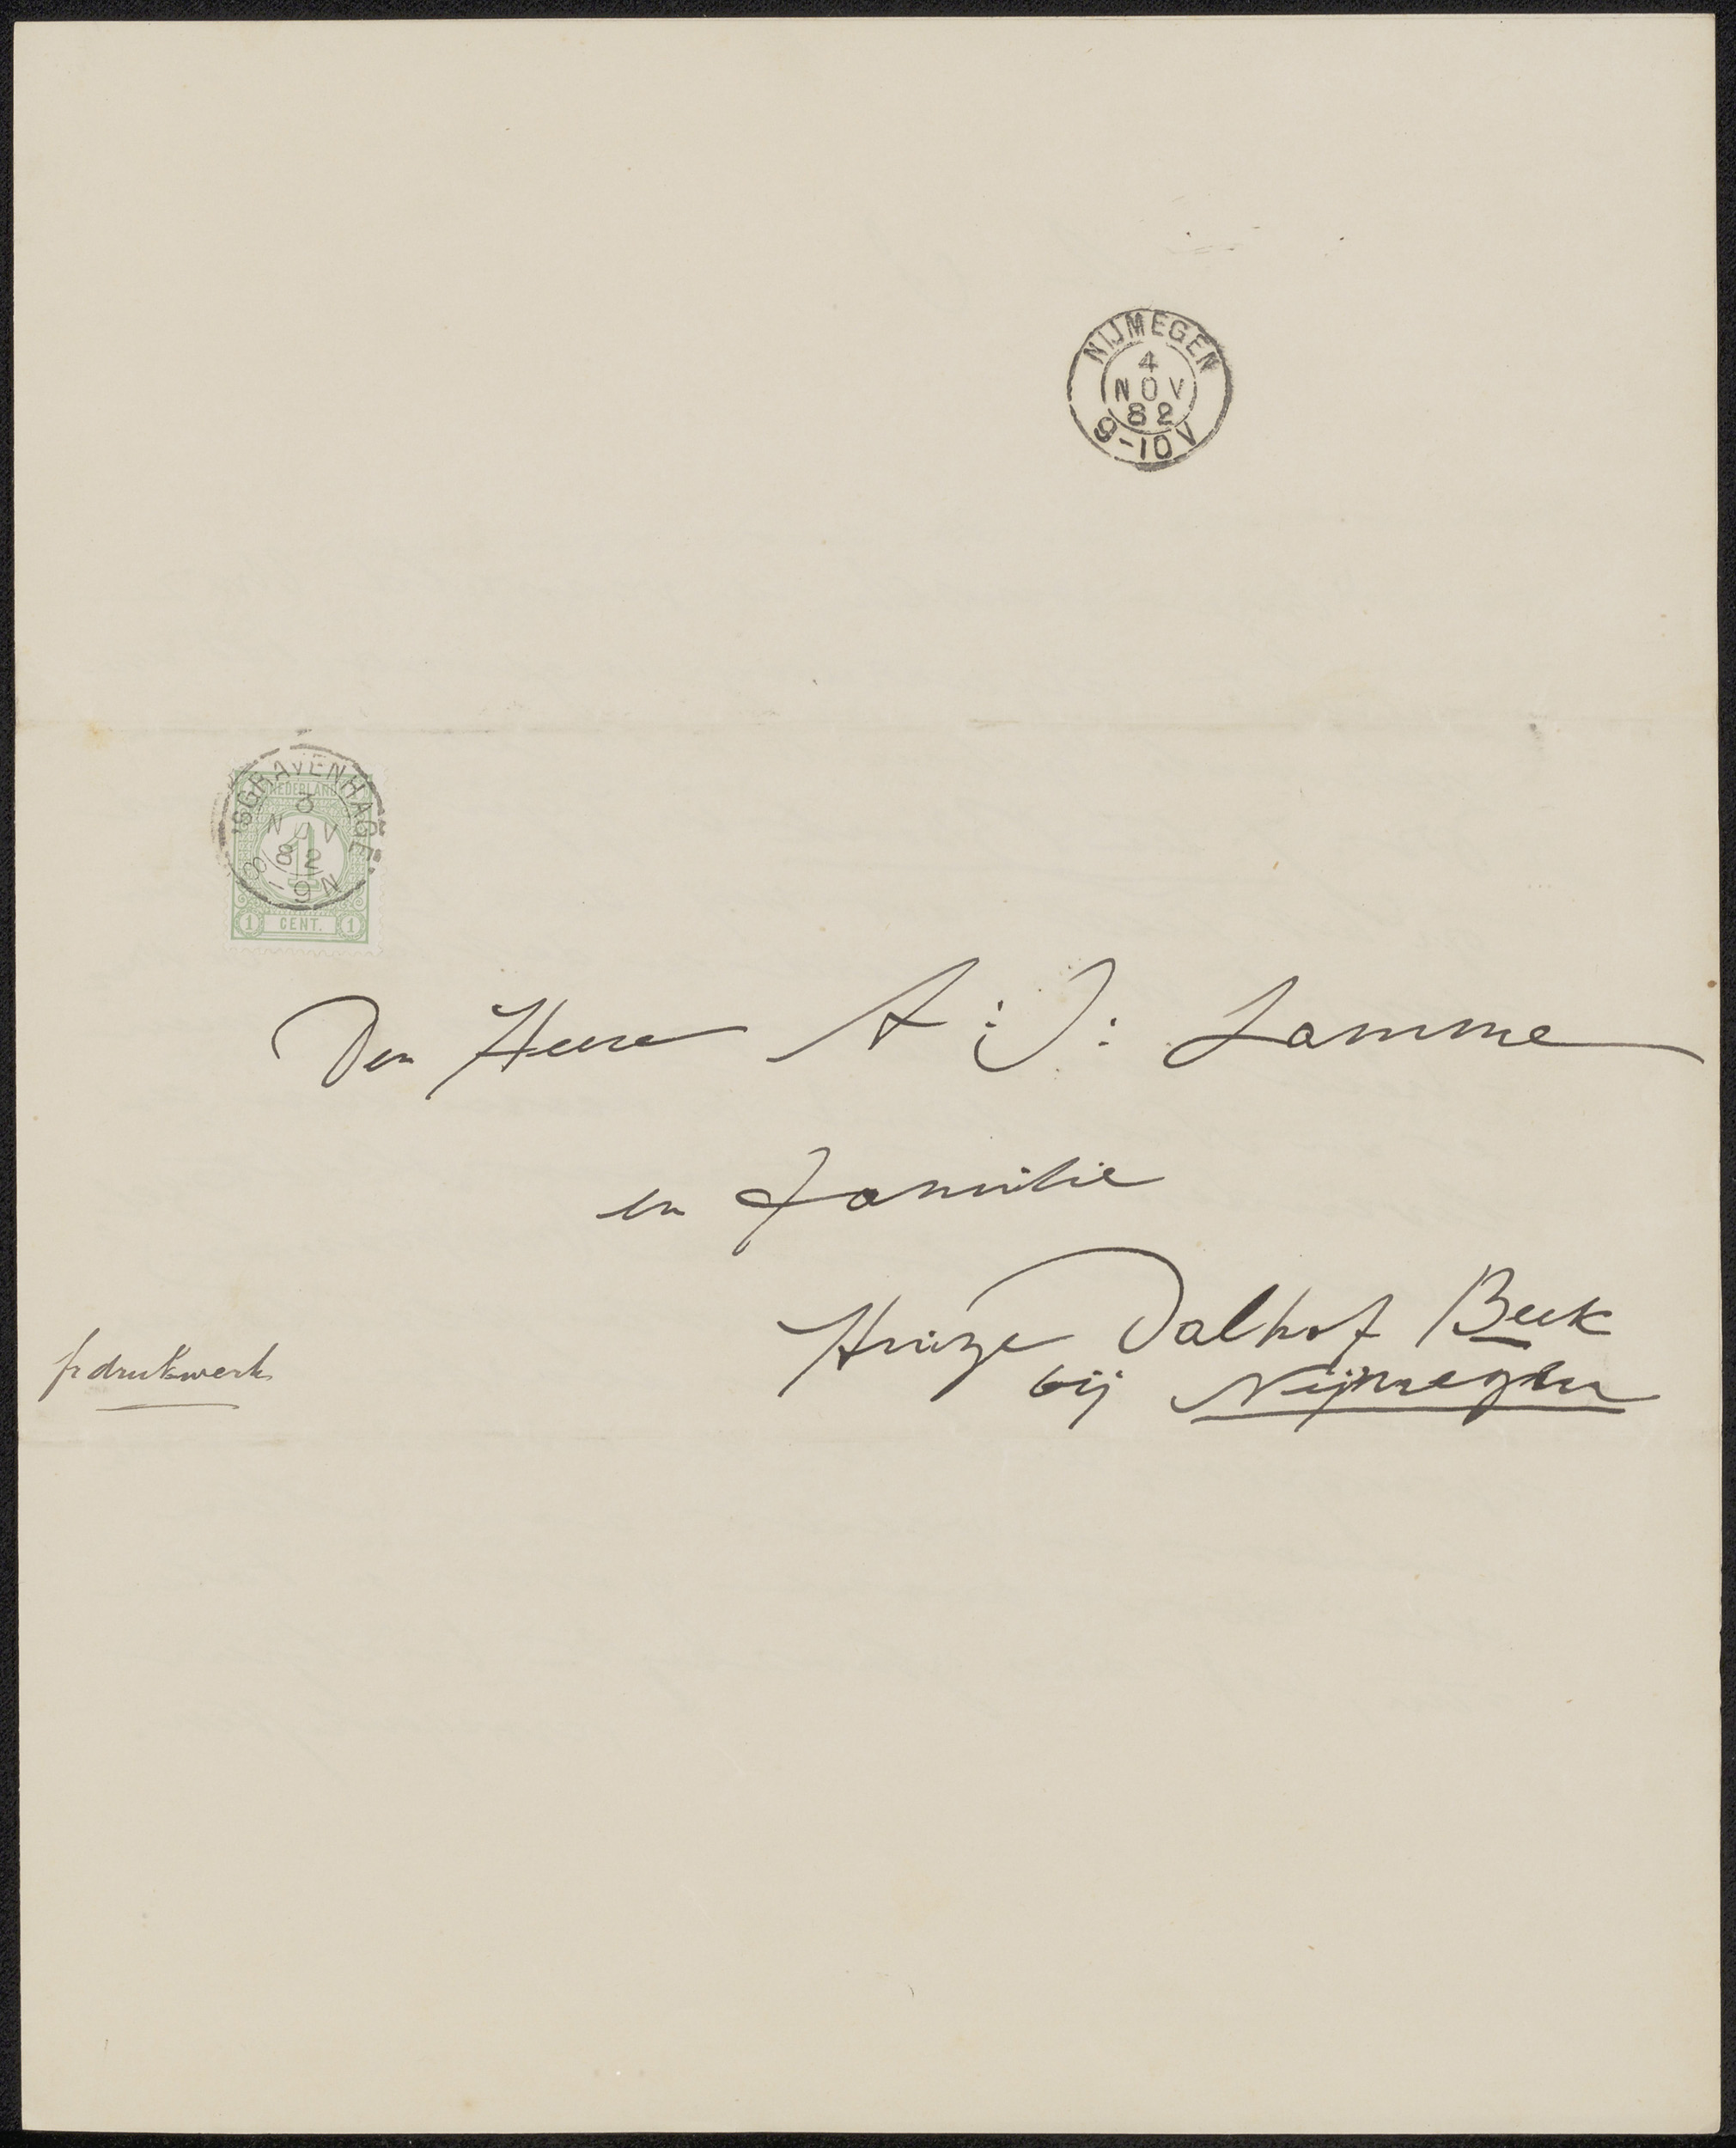 NIJMEGEN
4
NOV
82
9-10V
'SGRAVENHAGE
3
NOV
82
8-9N
NEDERLAND
1
1 CENT. 1
Den Heere A: J: Lamme
en Familie
Huize Dalhof Beek
bij Nijmegen
fr drukwerk